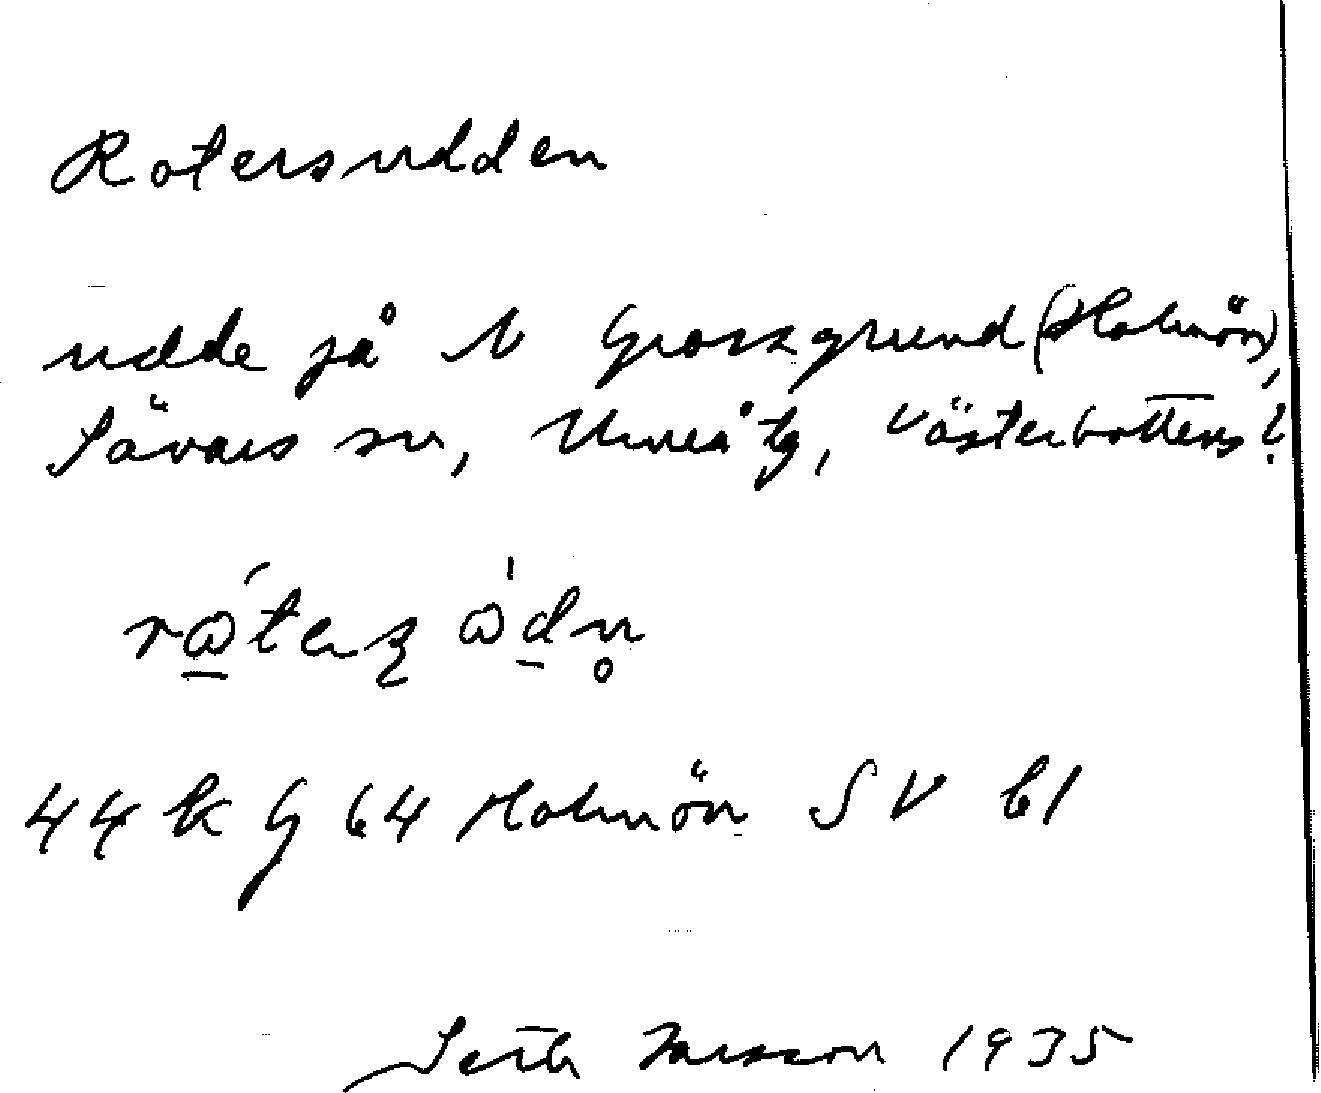 Rotersudden
udde på N Grossgrund (Holmön),
Sävars sn, Umeå tg, Västerbottens l.
44 k G 64 Holmön SV bl
Seth Larsson 1935